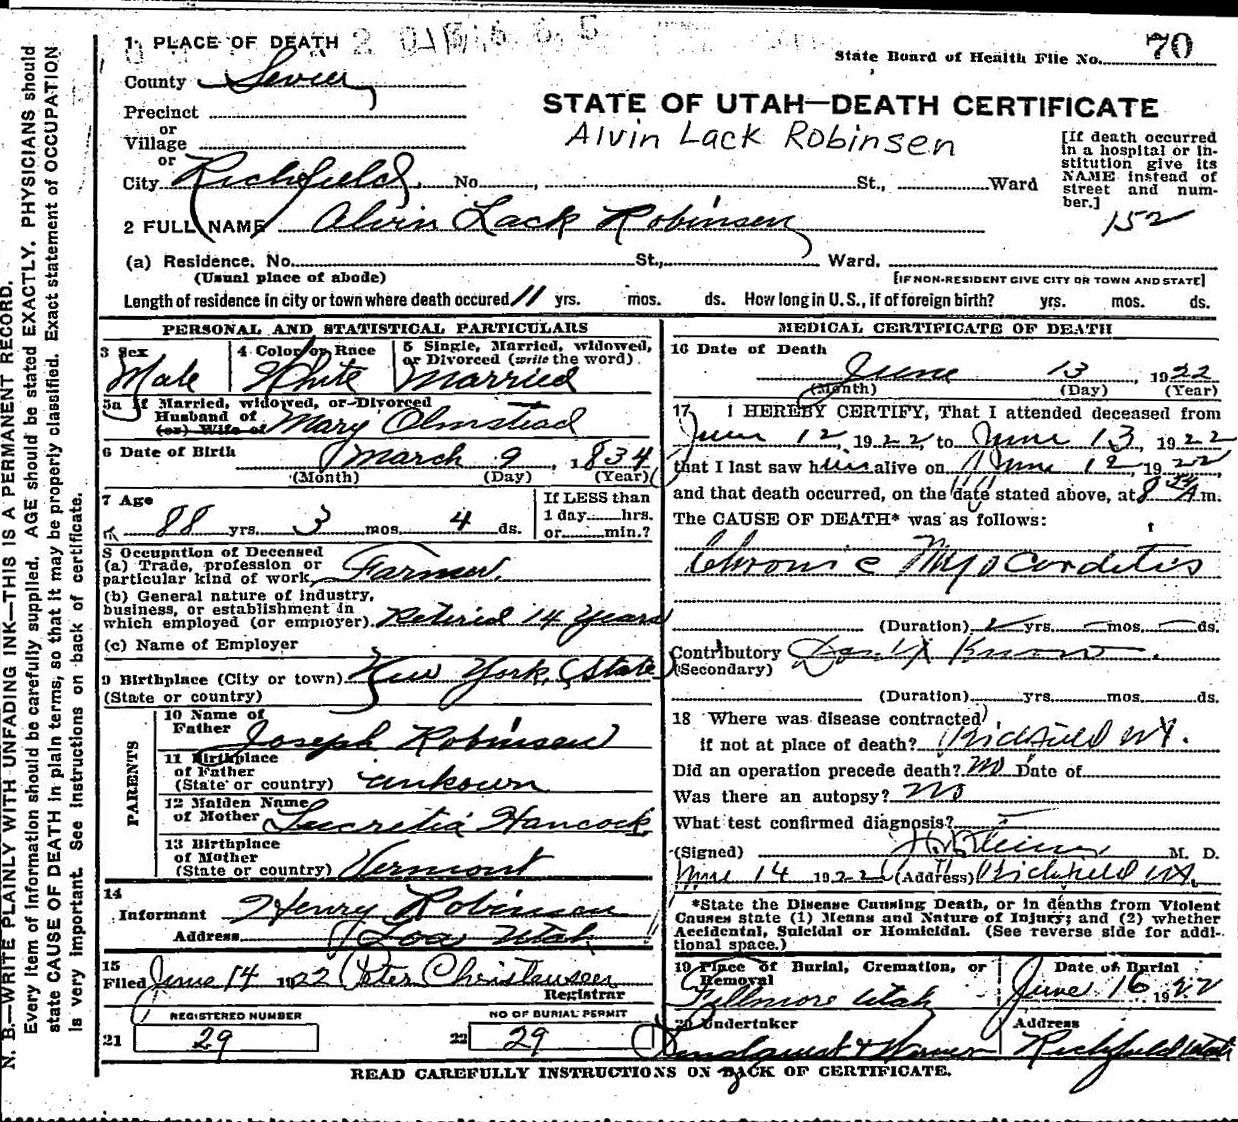 1 PLACE OF DEATH
State Board of Health File No. 70
County Sevier
STATE OF UTAH—DEATH CERTIFICATE
Precinct
or
Village
Alvin Lack Robinsen
[If death occurred in a hospital or institution give its NAME instead of street and number.]
or
City Richfield, No. , St., Ward
152
2 FULL NAME Alvin Lack Robinsen
(a) Residence. No. St., Ward.
(Usual place of abode)
[IF NON-RESIDENT GIVE CITY OR TOWN AND STATE]
Length of residence in city or town where death occured 11 yrs. mos. ds. How long in U.S., if of foreign birth? yrs. mos. ds.
PERSONAL AND STATISTICAL PARTICULARS
3 Sex
Male
4 Color or Race
White
5 Single, Married, widowed,
or Divorced (write the word).
Married
5a If Married, widowed, or Divorced
Husband of
(or) Wife of
Mary Olmstead
6 Date of Birth
March 9, 1834
(Month) (Day) (Year)
7 Age
88 yrs. 3 mos. 4 ds.
If LESS than
1 day hrs.
or min.?
8 Occupation of Deceased
(a) Trade, profession or
particular kind of work, Farmer.
(b) General nature of industry,
business, or establishment in
which employed (or employer). Retired 14 Years
(c) Name of Employer
9 Birthplace (City or town) New York, (State)
(State or country)
PARENTS
10 Name of
Father Joseph Robinsen
11 Birthplace
of Father
(State or country) unkown
12 Maiden Name
of Mother Lucretia Hancock
13 Birthplace
of Mother
(State or country) Vermont
14
Informant Henry Robinsen
Address Loa Utah
15
Filed June 14 1922 Peter Christensen
Registrar
REGISTERED NUMBER
21 29
NO OF BURIAL PERMIT
22 29
MEDICAL CERTIFICATE OF DEATH
16 Date of Death
June 13, 1922
(Month) (Day) (Year)
17 I HEREBY CERTIFY, That I attended deceased from
June 12, 1922, to June 13, 1922
that I last saw him alive on June 12, 1922
and that death occurred, on the date stated above, at 8 A m.
The CAUSE OF DEATH* was as follows:
Chronic Myocarditis
(Duration) yrs. mos. ds.
Contributory Don't Know.
(Secondary)
(Duration) yrs. mos. ds.
18 Where was disease contracted
if not at place of death? Richfield Ut.
Did an operation precede death? no Date of
Was there an autopsy? no
What test confirmed diagnosis?
(Signed) M. D.
June 14 1922 (Address) Richfield Ut.
*State the Disease Causing Death, or in deaths from Violent
Causes state (1) Means and Nature of Injury; and (2) whether
Accidental, Suicidal or Homicidal. (See reverse side for additional space.)
19 Place of Burial, Cremation, or
Removal
Fillmore Utah
Date of Burial
June 16 1922
20 Undertaker
Address
Richfield Utah
READ CAREFULLY INSTRUCTIONS ON BACK OF CERTIFICATE.
N. B.—WRITE PLAINLY WITH UNFADING INK—THIS IS A PERMANENT RECORD.
Every item of Information should be carefully supplied. AGE should be stated EXACTLY. PHYSICIANS should
state CAUSE OF DEATH in plain terms, so that it may be properly classified. Exact statement of OCCUPATION
is very important. See instructions on back of certificate.